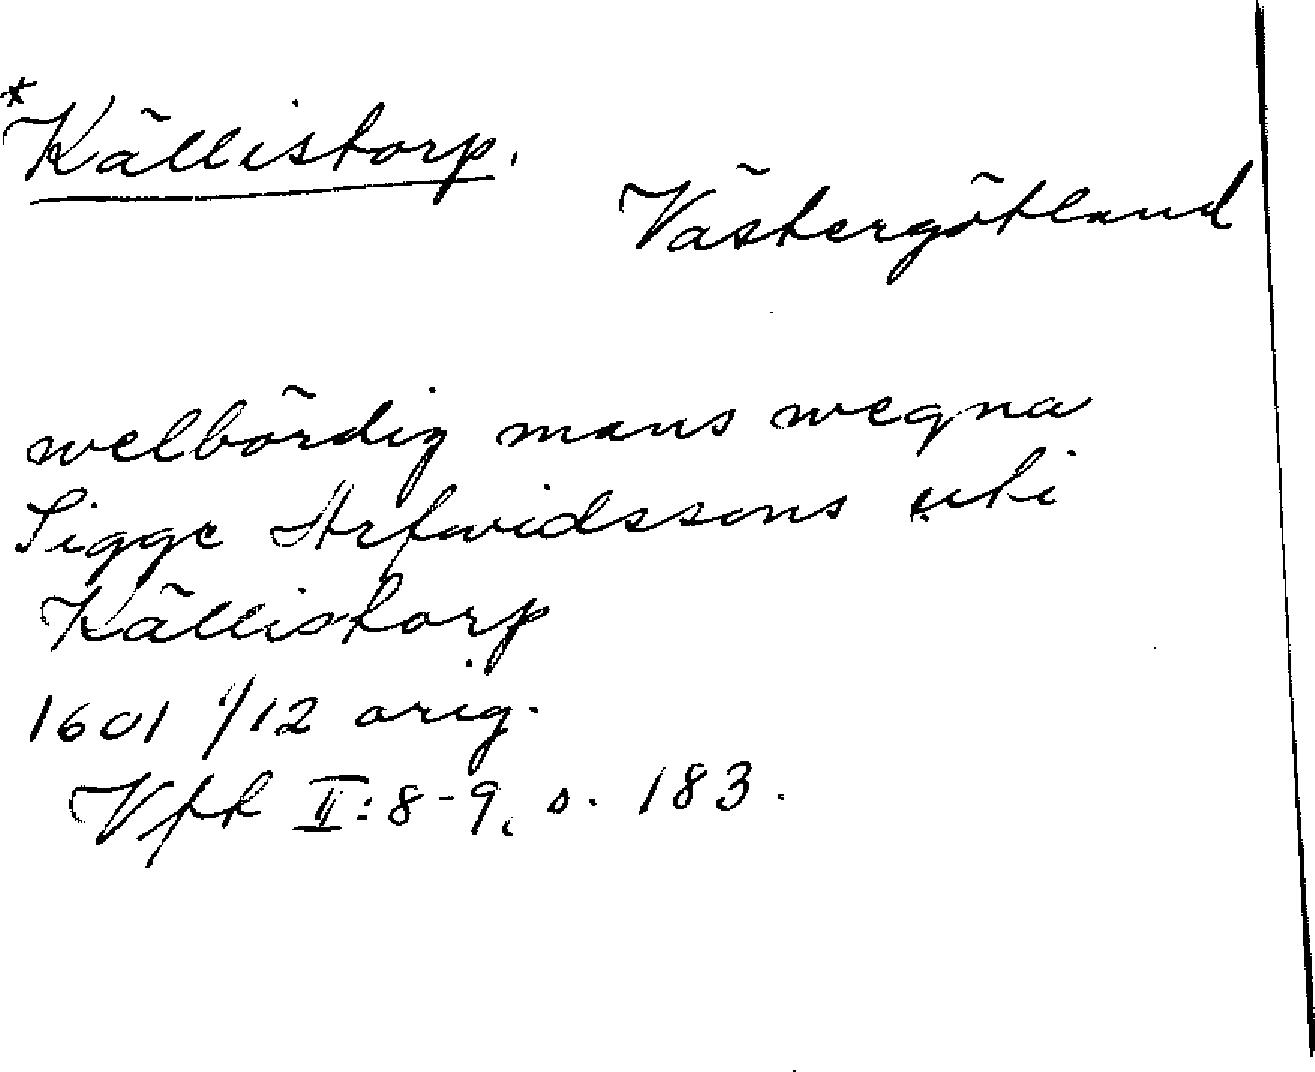 *Källistorp.
Västergötland
welbördig mans wegna
Sigge Arfwidssons uti
Källistorp
1601 1/12 orig.
Vfk II:8-9, s. 183.